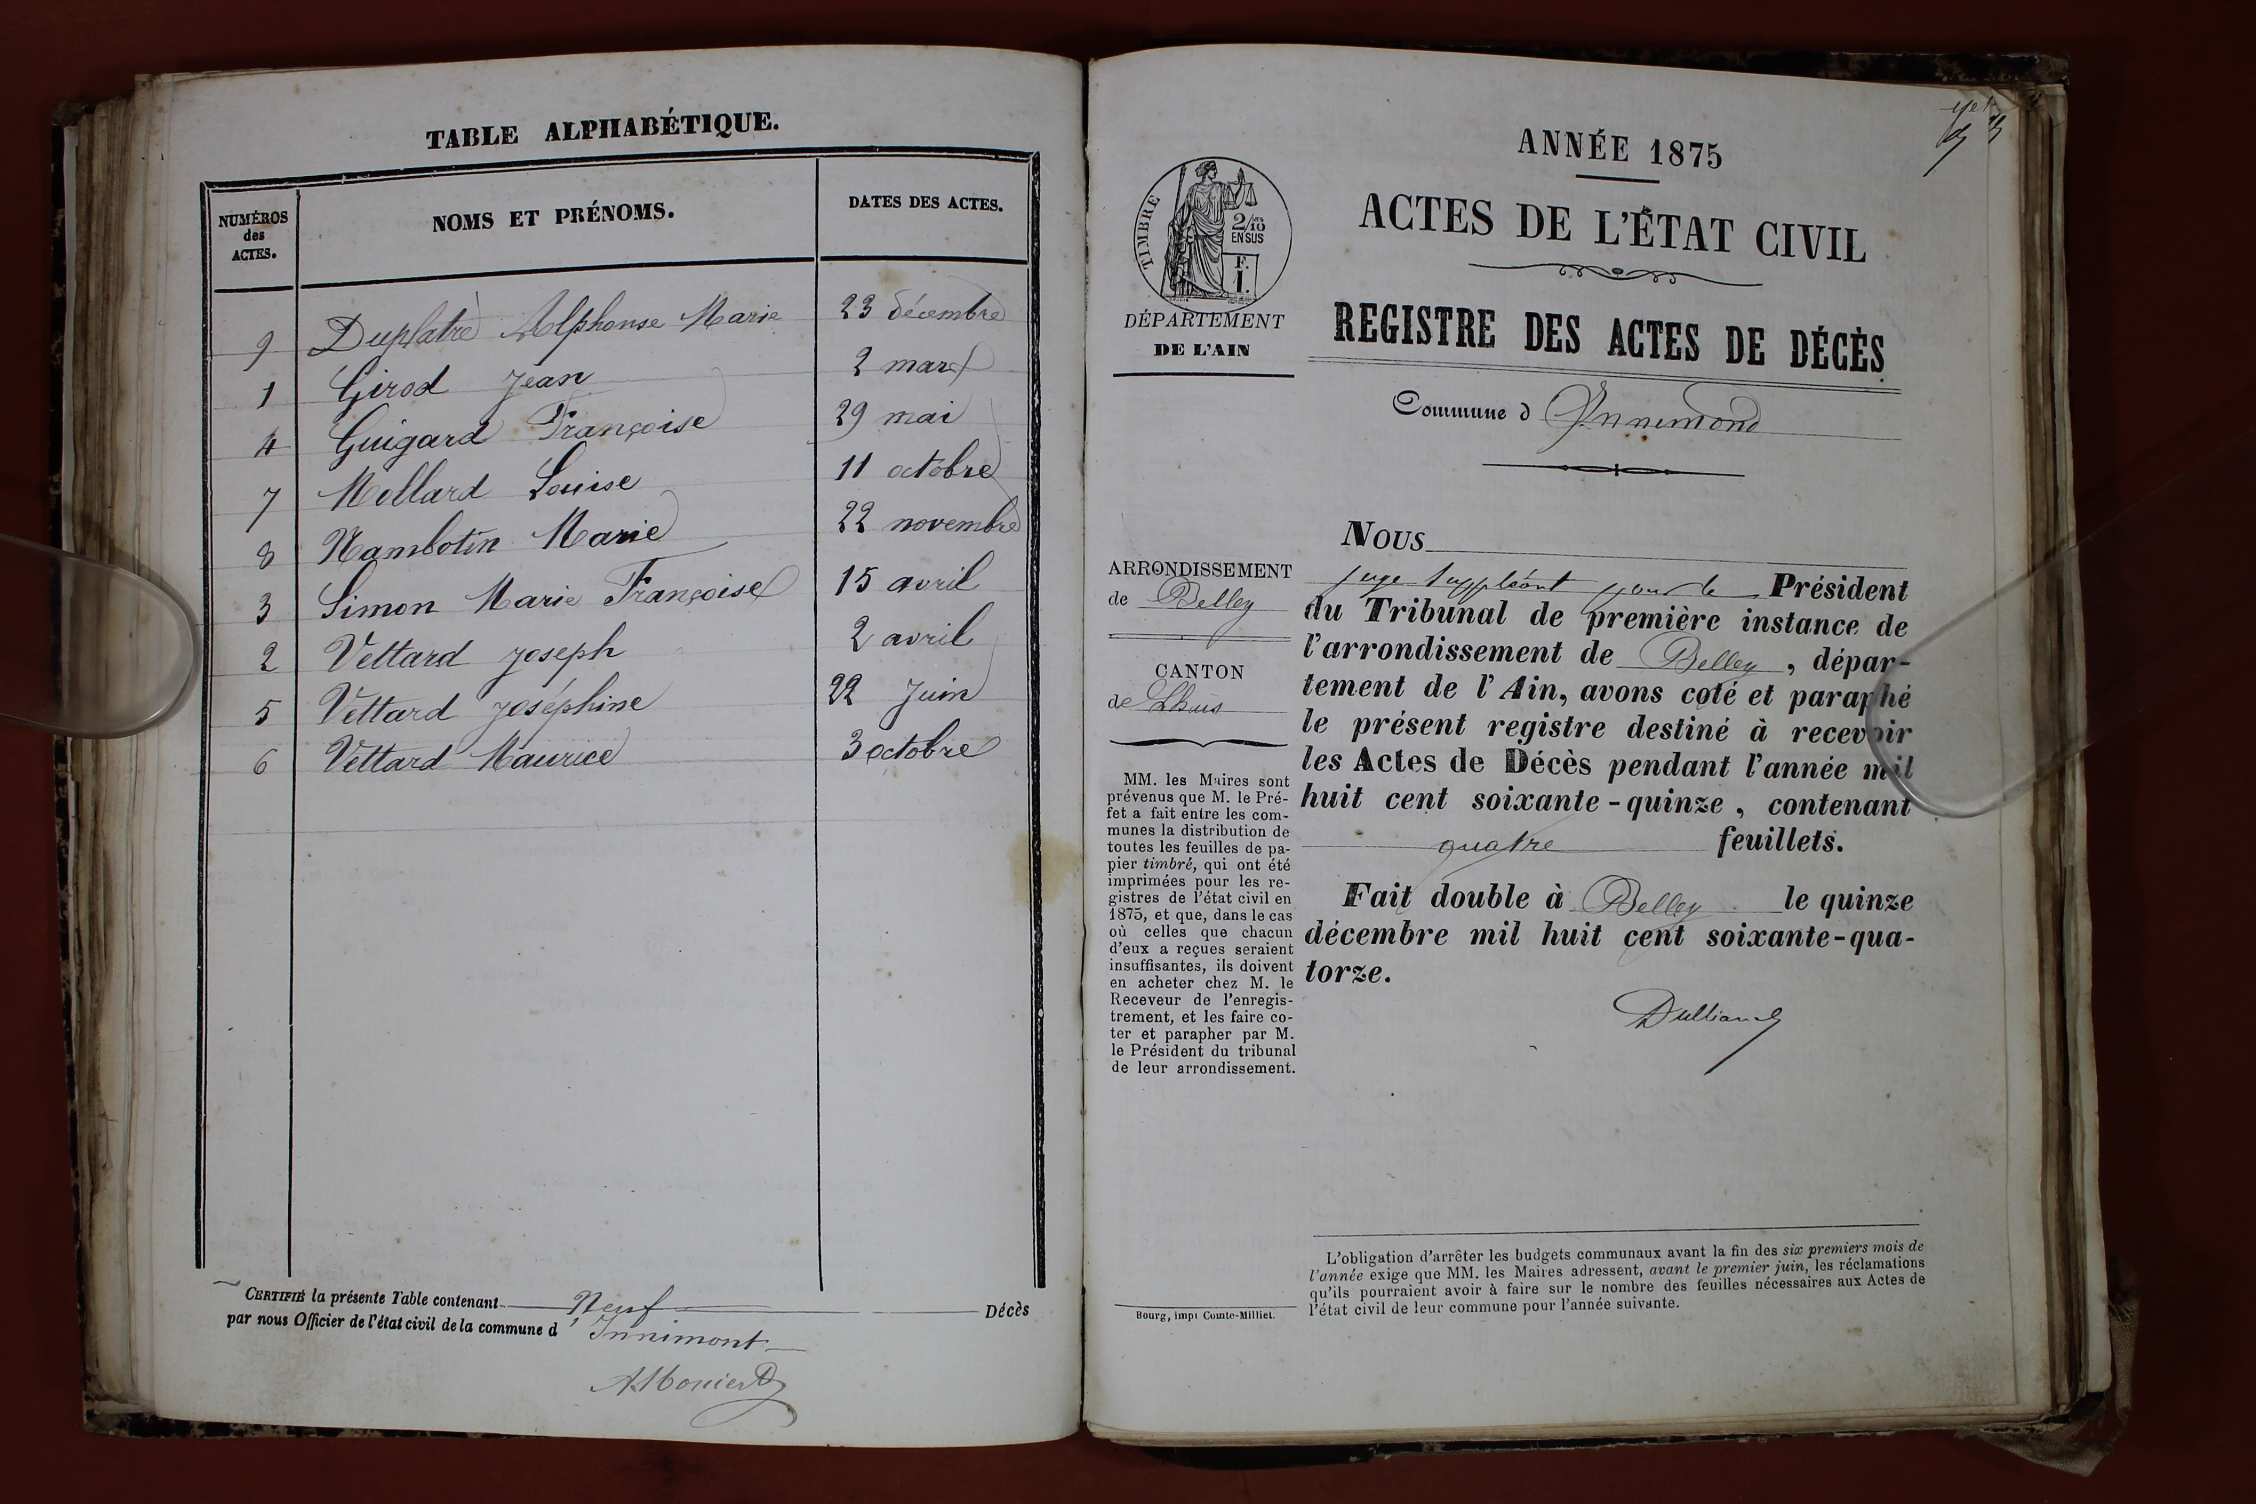 TABLE ALPHABÉTIQUE.
NUMÉROS
des
ACTES.
NOMS ET PRÉNOMS.
DATES DES ACTES.
9 Duplatre Alphonse Marie 23 décembre
1 Girod Jean 2 mars
4 Guigard Françoise 29 mai
7 Mellard Louise 11 octobre
8 Nambotin Marie 22 novembre
3 Simon Marie Françoise 15 avril
2 Vettard Joseph 2 avril
5 Vettard Joséphine 22 Juin
6 Vettard Maurice 3 octobre
CERTIFIÉ la présente Table contenant Neuf Décès
par nous Officier de l'état civil de la commune d'Innimont
ANNÉE 1875
ACTES DE L'ÉTAT CIVIL
REGISTRE DES ACTES DE DÉCÈS
Commune d Innimond
TIMBRE
2/10
EN SUS
F.
1.
DÉPARTEMENT
DE L'AIN
ARRONDISSEMENT
de Belley
CANTON
de Lhuis
MM. les Maires sont
prévenus que M. le Pré-
fet a fait entre les com-
munes la distribution de
toutes les feuilles de pa-
pier timbré, qui ont été
imprimées pour les re-
gistres de l'état civil en
1875, et que, dans le cas
où celles que chacun
d'eux a reçues seraient
insuffisantes, ils doivent
en acheter chez M. le
Receveur de l'enregis-
trement, et les faire co-
ter et parapher par M.
le Président du tribunal
de leur arrondissement.
Bourg, impr Comte-Milliet.
NOUS
juge suppléant pour le Président
du Tribunal de première instance de
l'arrondissement de Belley, dépar-
tement de l'Ain, avons coté et paraphé
le présent registre destiné à recevoir
les Actes de Décès pendant l'année mil
huit cent soixante-quinze, contenant
quatre feuillets.
Fait double à Belley le quinze
décembre mil huit cent soixante-qua-
torze.
L'obligation d'arrêter les budgets communaux avant la fin des six premiers mois de
l'année exige que MM. les Maires adressent, avant le premier juin, les réclamations
qu'ils pourraient avoir à faire sur le nombre des feuilles nécessaires aux Actes de
l'état civil de leur commune pour l'année suivante.